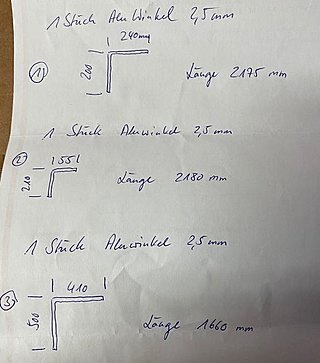 1 Stück AluWinkel 2,5mm
240mm
1) 200 Länge 2175 mm
1 Stück Aluwinkel 2,5mm
2) 55
210 Länge 2180 mm
1 Stück Aluwinkel 2,5mm
410
3) 500 Länge 1660 mm